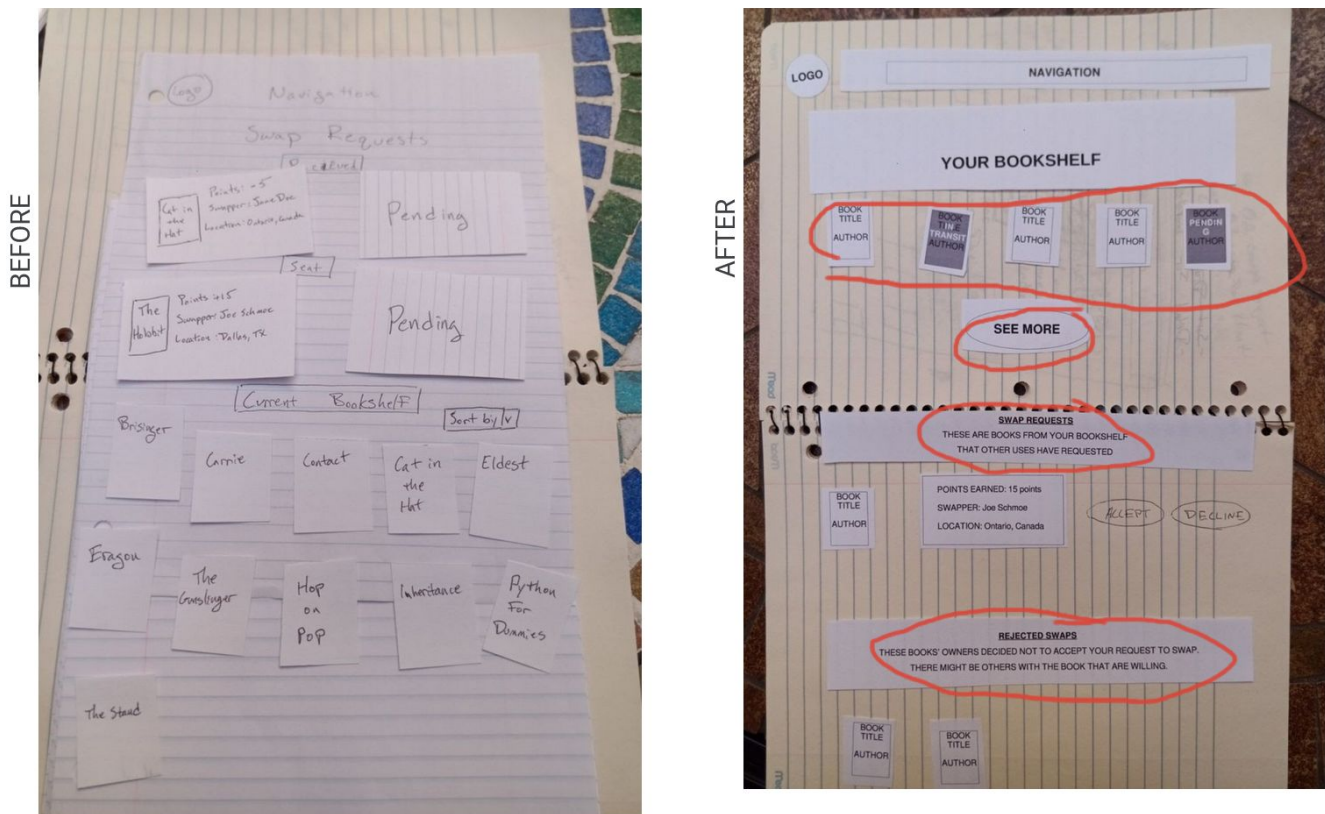 BEFORE
Logo
Navigation
Swap Requests
Cat in
the
Hat
Points: -5
Swapper: Jane Doe
Location: Ontario, Canada
Pending
Sent
The
Hobbit
Points +15
Swapper: Joe Schmoe
Location: Dallas, TX
Pending
Current Bookshelf
Sort by v
Brisinger
Carrie
Contact
Cat in
the
Hat
Eldest
Eragon
The
Gunslinger
Hop
on
Pop
Inheritance
Python
For
Dummies
The Stand
AFTER
LOGO
NAVIGATION
YOUR BOOKSHELF
BOOK
TITLE
AUTHOR
BOOK
IN
TRANSIT
AUTHOR
BOOK
TITLE
AUTHOR
BOOK
TITLE
AUTHOR
BOOK
PENDIN
G
AUTHOR
SEE MORE
SWAP REQUESTS
THESE ARE BOOKS FROM YOUR BOOKSHELF
THAT OTHER USES HAVE REQUESTED
BOOK
TITLE
AUTHOR
POINTS EARNED: 15 points
SWAPPER: Joe Schmoe
LOCATION: Ontario, Canada
ACCEPT
DECLINE
REJECTED SWAPS
THESE BOOKS' OWNERS DECIDED NOT TO ACCEPT YOUR REQUEST TO SWAP.
THERE MIGHT BE OTHERS WITH THE BOOK THAT ARE WILLING.
BOOK
TITLE
AUTHOR
BOOK
TITLE
AUTHOR
Mead